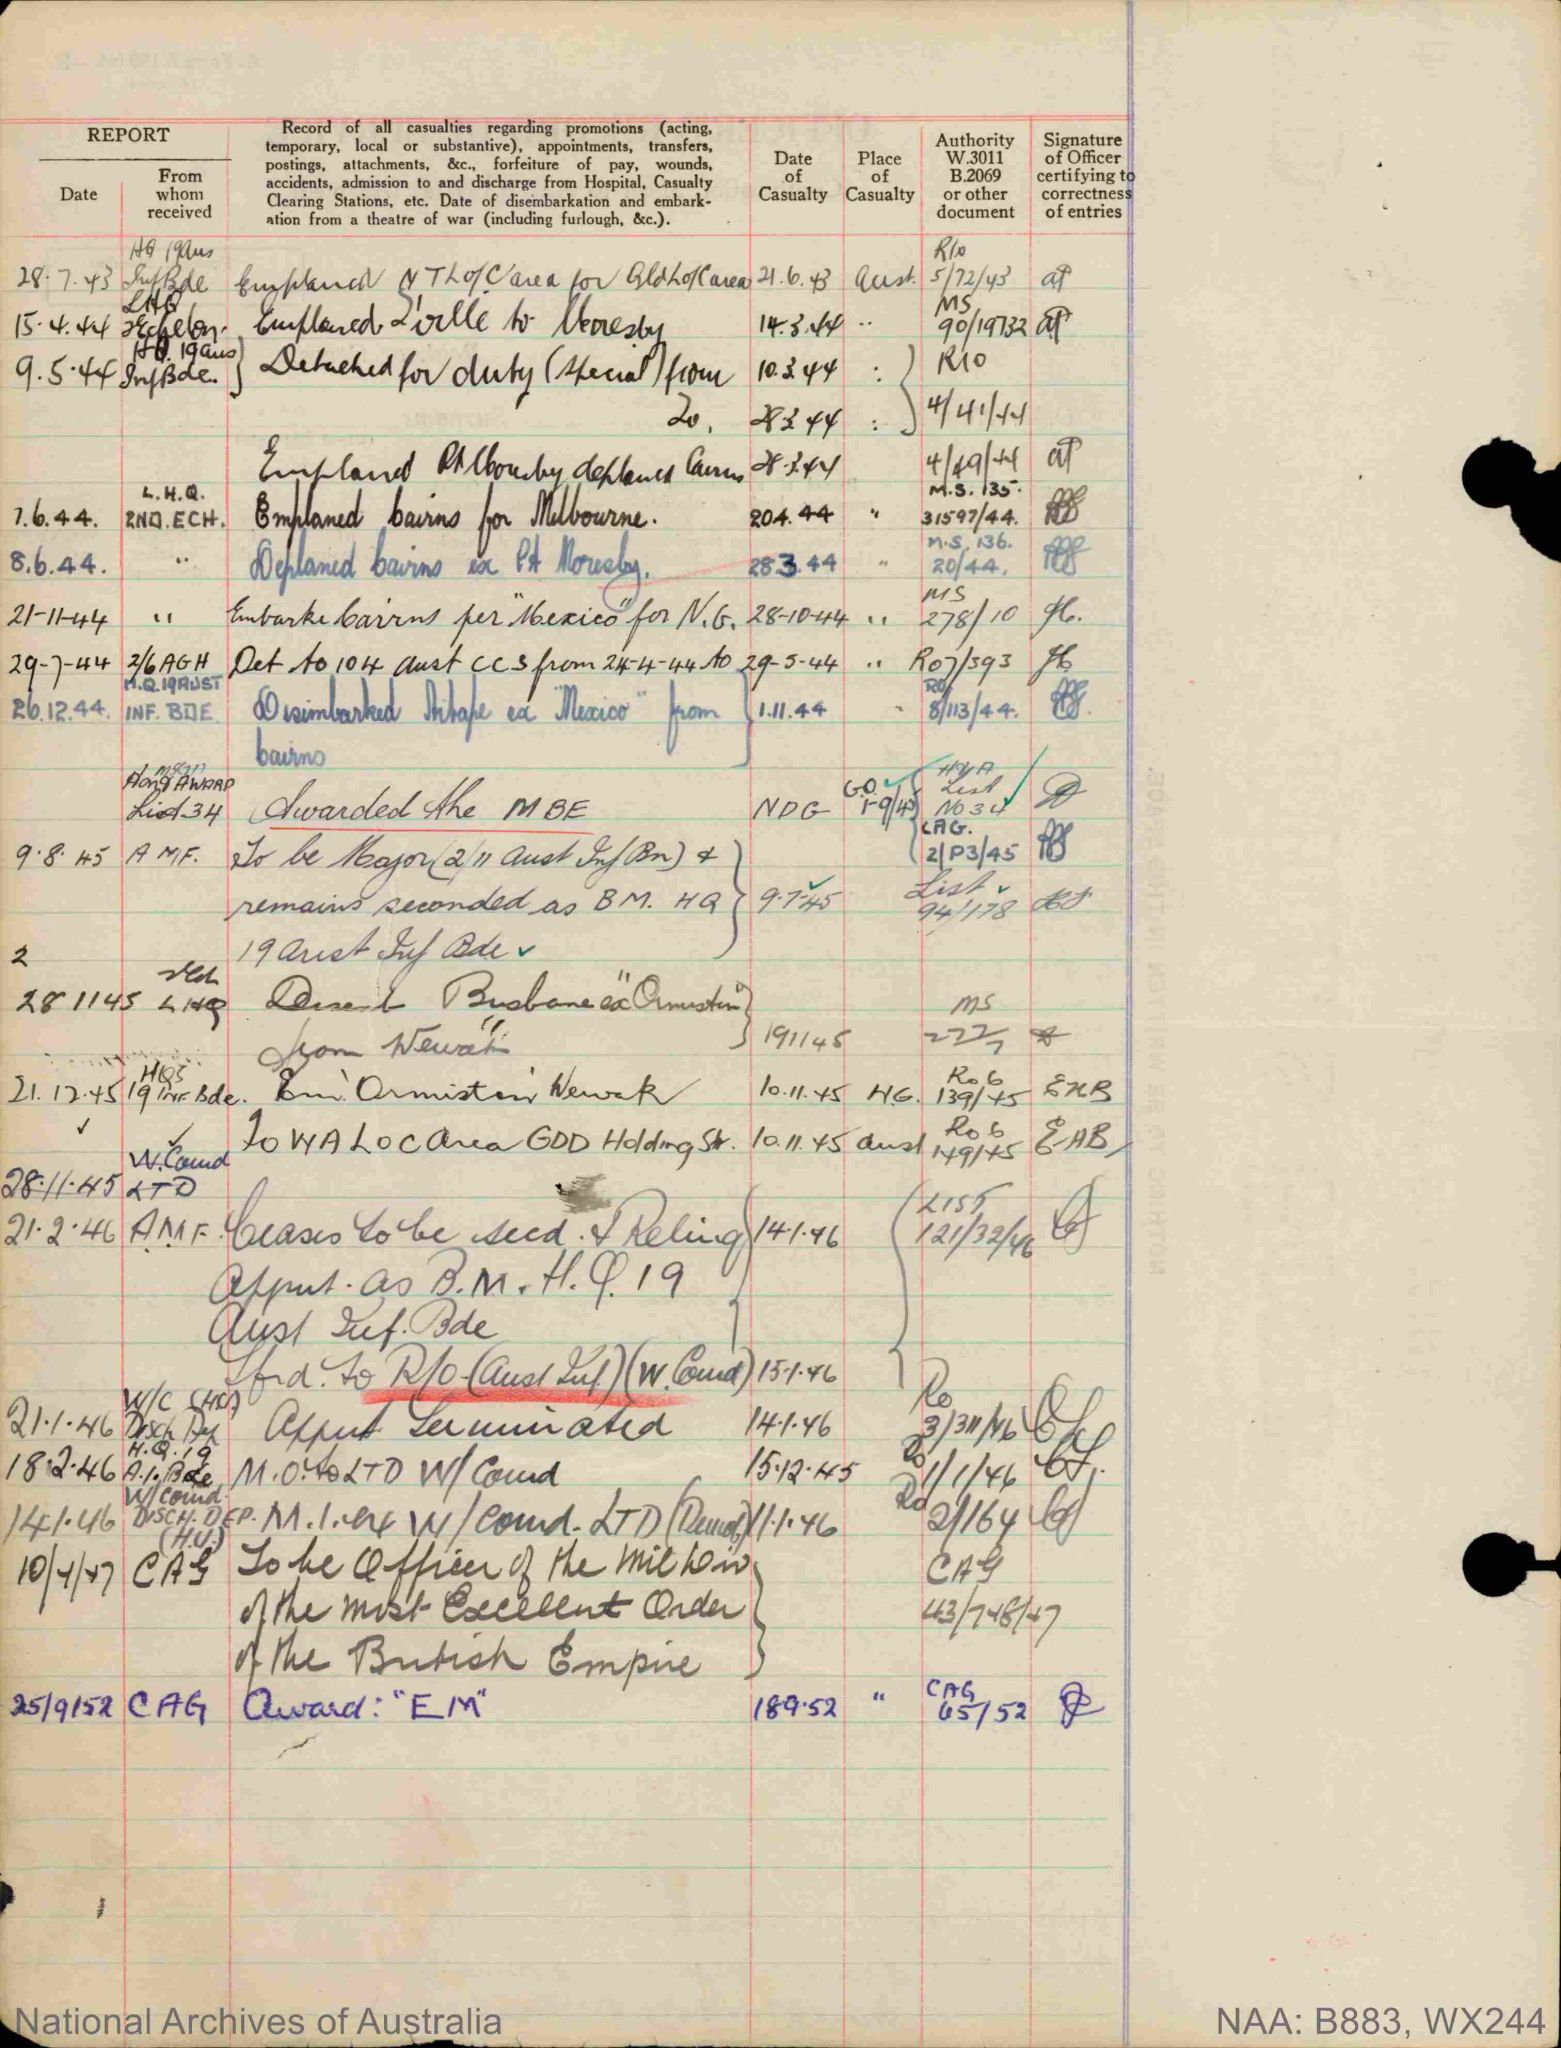 REPORT
Date
From whom received
Record of all casualties regarding promotions (acting,
temporary, local or substantive), appointments, transfers,
postings, attachments, &c., forfeiture of pay, wounds,
accidents, admission to and discharge from Hospital, Casualty
Clearing Stations, etc. Date of disembarkation and embark-
ation from a theatre of war (including furlough, &c.).
Date of Casualty
Place of Casualty
Authority W.3011 B.2069 or other document
Signature of Officer certifying to correctness of entries
HQ 19 Aus R10
28.7.43 Inf Bde Emplaned N T L of C area for Qld L of C area 21.6.43 Aust. 5/72/43
LHQ MS
15.4.44 2 Echelon. Emplaned T'ville to Moresby 14.3.44 " 90/19732
HQ. 19 Aus
9.5.44 Inf Bde. Detached for duty (special) from 10.3.44 : R10
To. 28.3.44 : 4/41/44
Emplaned Pt Moresby deplaned Cairns 28.3.44 4/49/44
L.H.Q. M.S. 135.
7.6.44. 2ND. ECH. Emplaned Cairns for Melbourne. 20.4.44 " 31597/44.
M.S. 136.
8.6.44. " Deplaned Cairns ex Pt Moresby. 28.3.44 " 20/44.
MS
21-11-44 " Embarke Cairns per "Mexico" for N.G. 28-10-44 " 278/10
29-7-44 2/6 AGH Det to 104 Aust CCS from 24-4-44 to 29-5-44 " R07/393
H.Q. 19 AUST RO
26.12.44. INF. BDE Disembarked Aitape ex "Mexico" from 1.11.44 " 8/113/44.
Cairns
Hon & AWARD
List 34 Awarded the MBE NDG List No 34
CAG.
9.8.45 A.M.F. To be Major (2/11 Aust Inf Bn) & 2/P3/45
remains seconded as B.M. HQ 9.7.45 List 94/178
19 Aust Inf Bde
2
28 11 45 LHQ Disemb Brisbane ex "Ormiston" MS
from Wewak 19 11 45 222/7
HQS Ro 6
21.12.45 19 INF Bde. Em "Ormiston" Wewak 10.11.45 NG. 139/45 EAB
Ro 6
To WA L O C Area GDD Holding St. 10.11.45 Aust 149/45 EAB
W. Comd
28.11.45 LTD
21.2.46 A.M.F. Ceases to be secd. & Relinq 14.1.46 LIST 121/32/46
Appmt. as B.M. H.Q. 19
Aust Inf. Bde
Tfrd. to R/O (Aust Inf.) (W. Comd) 15.1.46
W/C Ro
21.1.46 Disch Dep Appmt Terminated 14.1.46 3/311/46
H.Q. 19 Ro
18.2.46 A.I. Bde M.O. to LTD W/Comd 15.12.45 1/1/46
W/Comd. Ro
14.1.46 DISCH. DEP. M.I. ex W/Comd. LTD 11.1.46 2/164
10/4/47 CAG To be Officer of the Mil Div CAG
of the most Excellent Order 43/748/47
of the British Empire
25/9/52 CAG Award: "EM" 18.9.52 " CAG 65/52
National Archives of Australia
NAA: B883, WX244